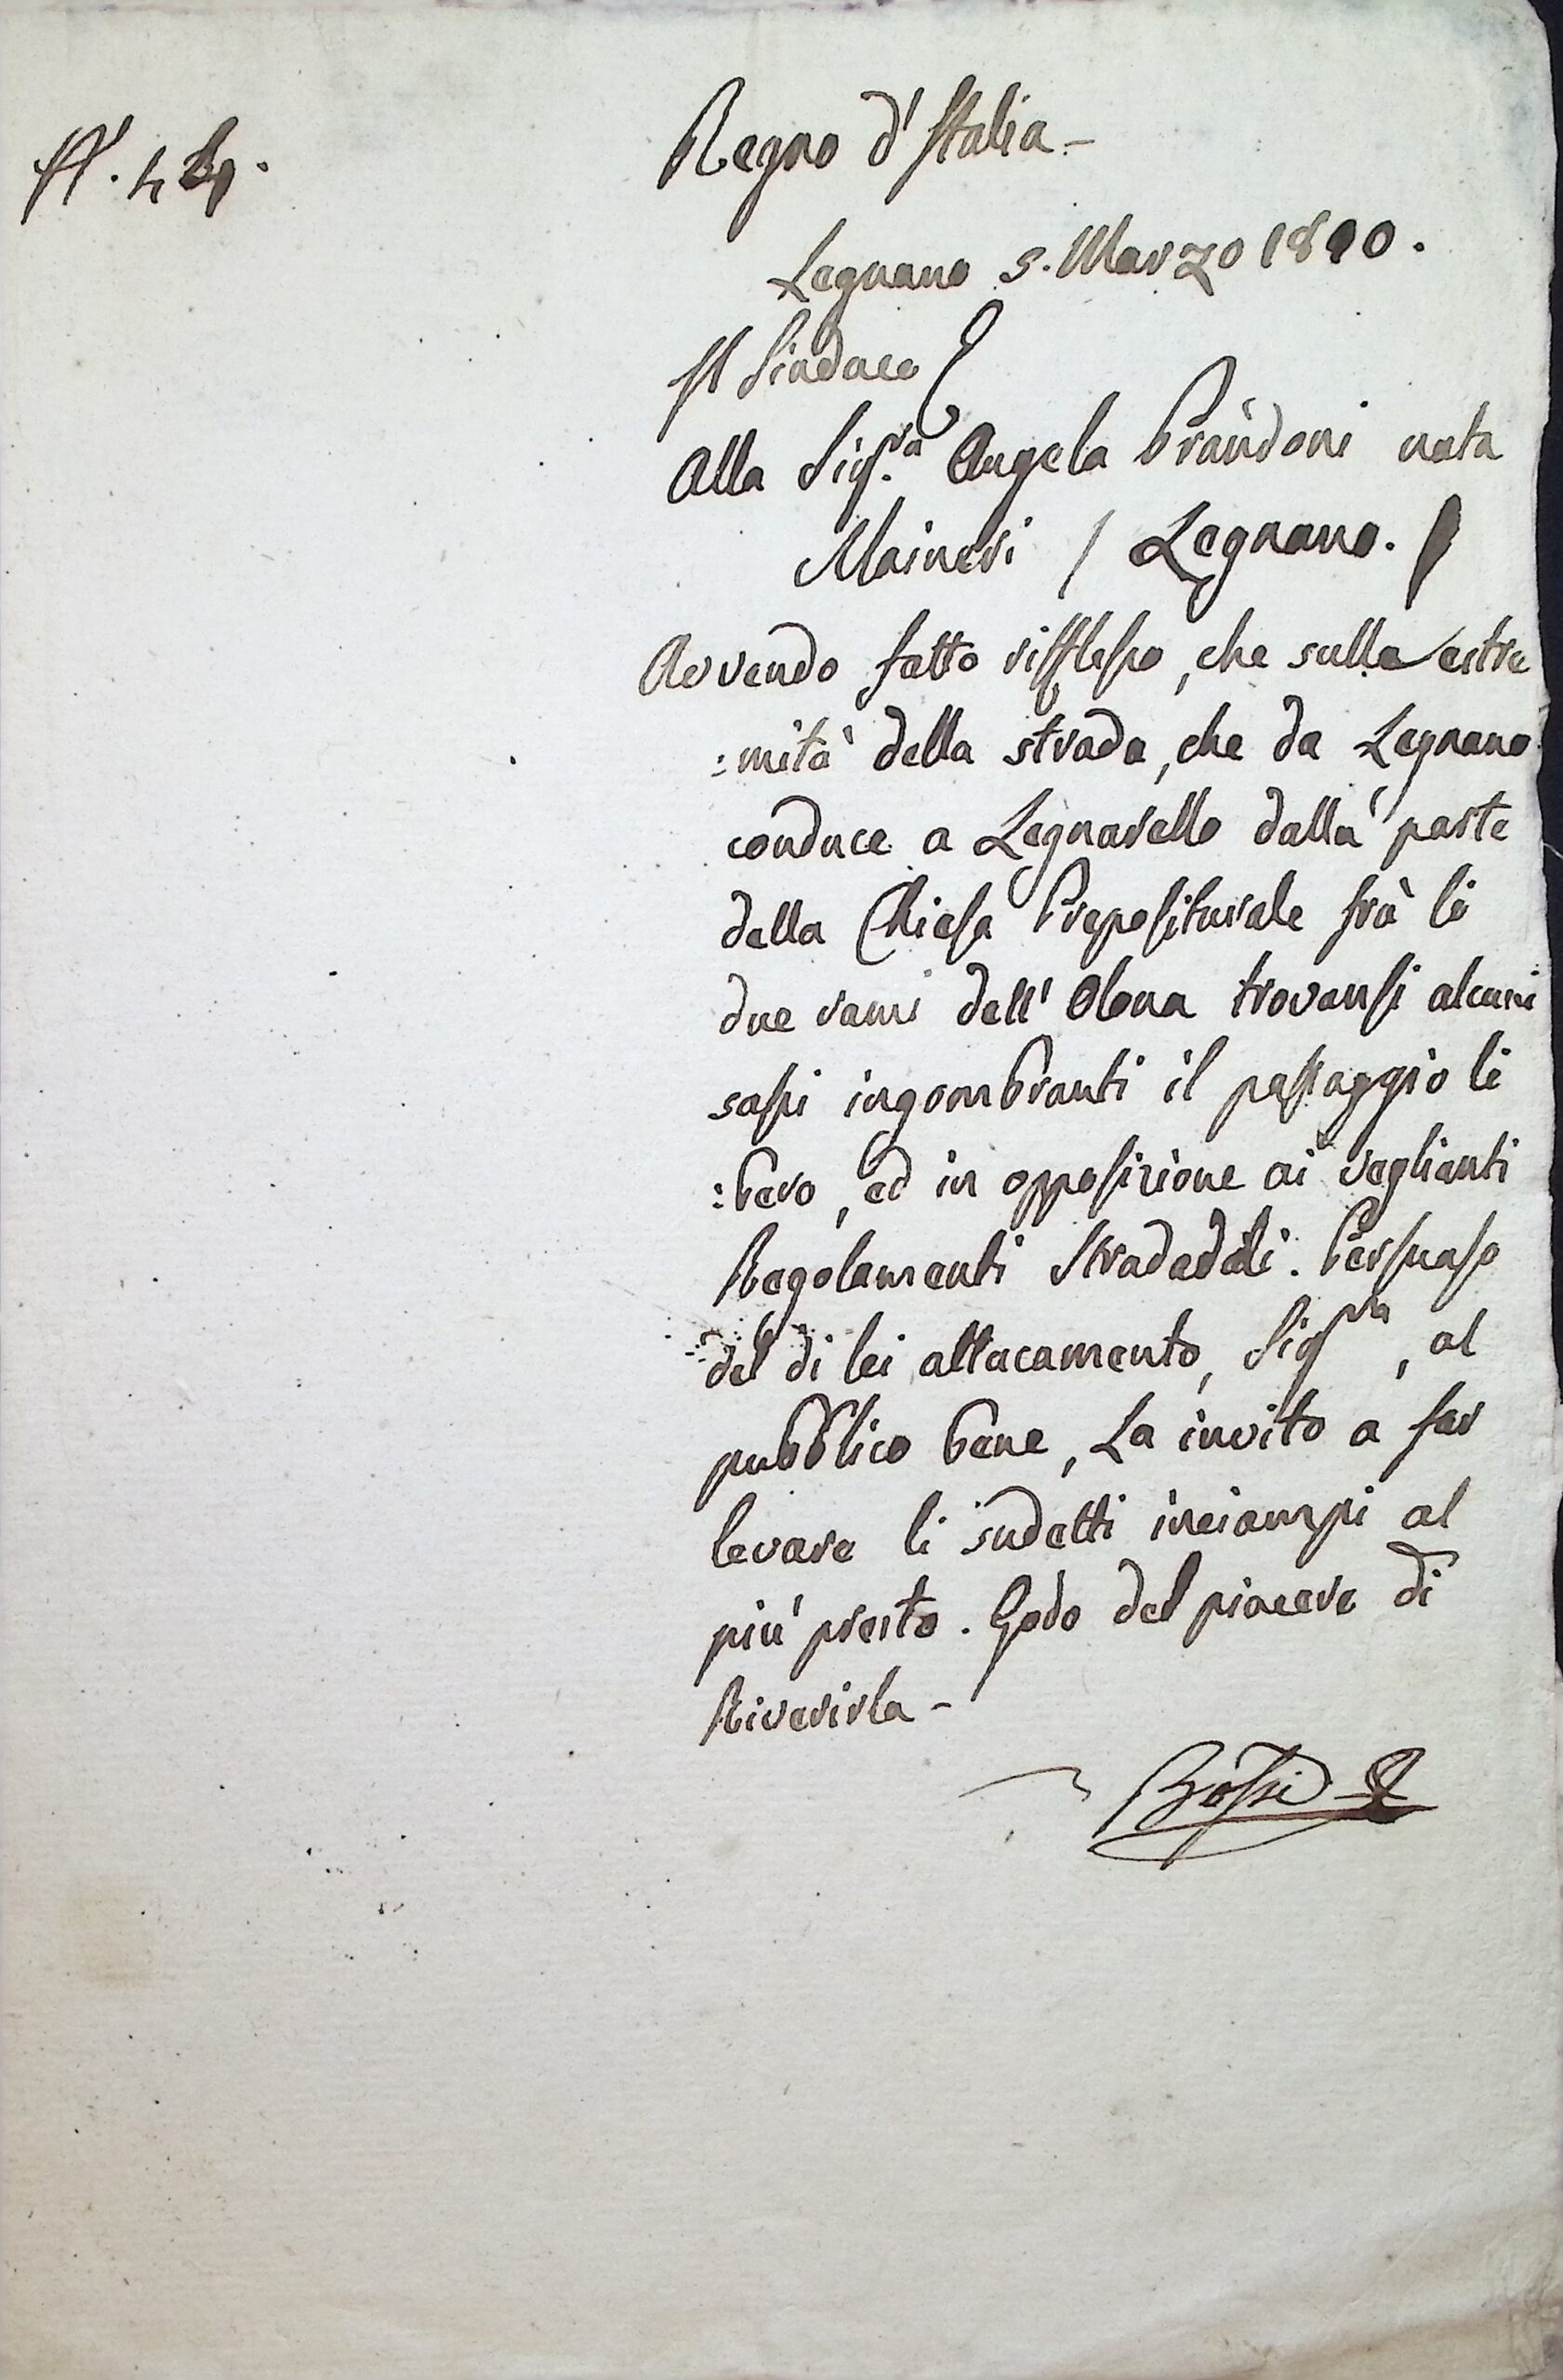 N.° 44.
Regno d'Italia -
Legnano 5. Marzo 1810.
Il Sindaco
Alla Sig.ra Angela Prandoni nata
Maineri / Legnano. /
Avvendo fatto rifflesso, che sulla estre
:mità della strada, che da Legnano
conduce a Legnarello dalla parte
della Chiesa Prepositurale frà li
due rami dell' Olona trovansi alcuni
sassi ingombranti il passaggio li
:bero, ed in opposizione ai veglianti
Regolamenti Stradali. Persuaso
del di lei attacamento, Sig.ra, al
pubblico bene, La invito a far
levare li sudetti inciampi al
più presto. Godo del piacere di
Riverirla -
Bossi